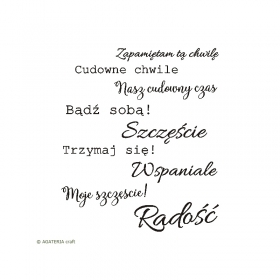 Zapamiętam tą chwilę
Cudowne chwile
Nasz cudowny czas
Bądź sobą!
Szczęście
Trzymaj się!
Wspaniale
Moje szczęście!
Radość
© AGATERIA craft